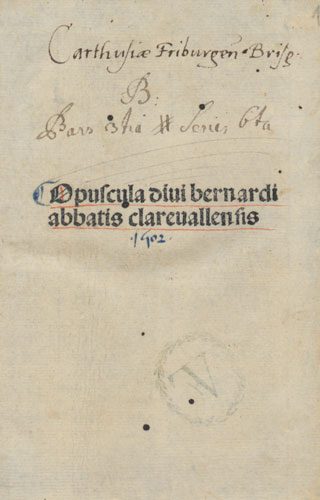 Carthusiæ Friburgen. Brisg.
B:
Pars 3tia # Series 6ta
Opuscula diui bernardi
abbatis clareuallensis
·1502·
V